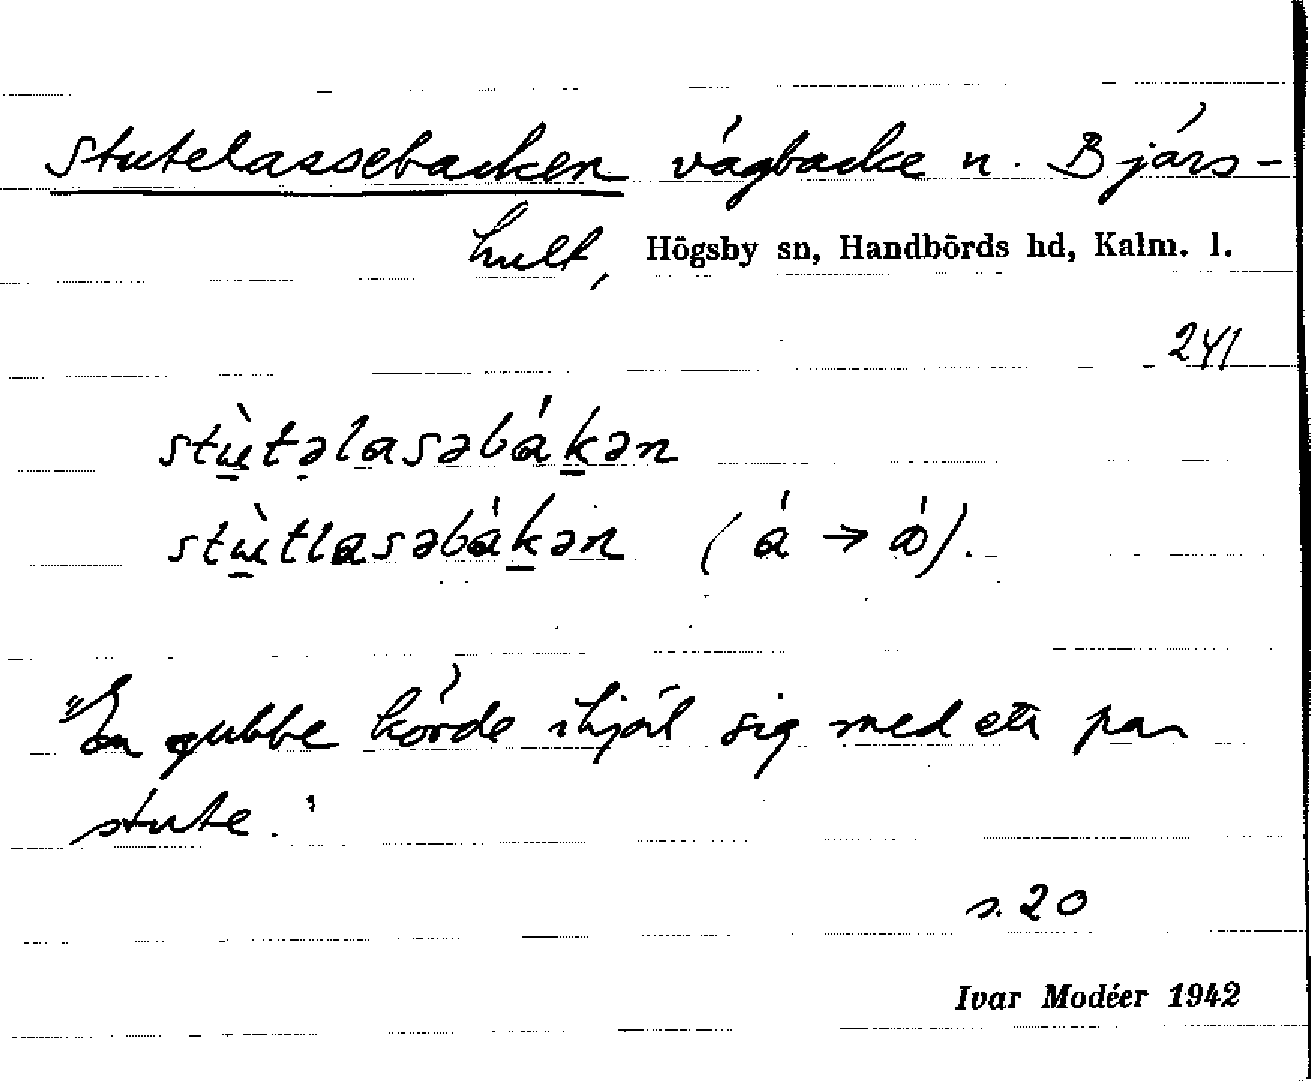 Stutelassebacken vägbacke n. Bjärs-
hult, Högsby sn, Handbörds hd, Kalm. l.
241
stù̱tə̣lasəbák̲ən
stù̱tlasəbák̲ən (á → ɑ́).
"En gubbe körde ihjäl sig med ett par
stute."
s. 20
Ivar Modéer 1942